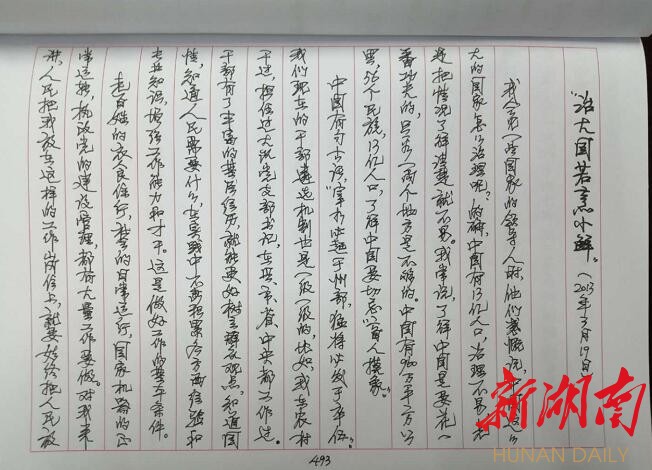 “治大国若烹小鲜。”
（2013年3月19日）
我会见一些国家的领导人时，他们感慨说，中国这么
大的国家怎么治理呢？的确，中国有13亿人口，治理不易，光
是把情况了解清楚就不易。我常说，了解中国是要花一
番功夫的，只看一两个地方是不够的。中国有960万平方公
里，56个民族，13亿人口，了解中国要切忌“盲人摸象”。
中国有句古话，“宰相必起于州部，猛将必发于卒伍”。
我们现在的干部遴选机制也是一级一级的，比如，我在农村
干过，担任过大队党支部书记，在县、市、省、中央都工作过。
干部有了丰富的基层经历，就能更好树立群众观点，知道国
情，知道人民需要什么，在实践中不断积累各方面经验和
专业知识，增强工作能力和才干。这是做好工作的基本条件。
老百姓的衣食住行，社会的日常运行，国家机器的正
常运转，执政党的建设管理，都有大量工作要做。对我来
讲，人民把我放在这样的工作岗位上，就要始终把人民放
493
新湖南
HUNAN DAILY